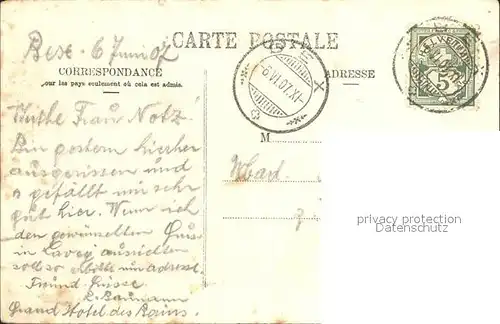 Bex. 6 Juni 07
CARTE POSTALE
CORRESPONDANCE
pour les pays seulement où cela est admis.
ADRESSE
BEX
6 VI.07.XI
5
M
Mad.
Werthe Frau Notz!
Bin gestern hierher
ausgerissen und
es gefällt mir sehr
gut hier. Wenn ich
den gewünschten Gruss
in Lavey ausrichten
soll so bitte um adresse.
Freund. Grüsse
R. Baumann
Grand Hotel des Bains.
privacy protection
Datenschutz